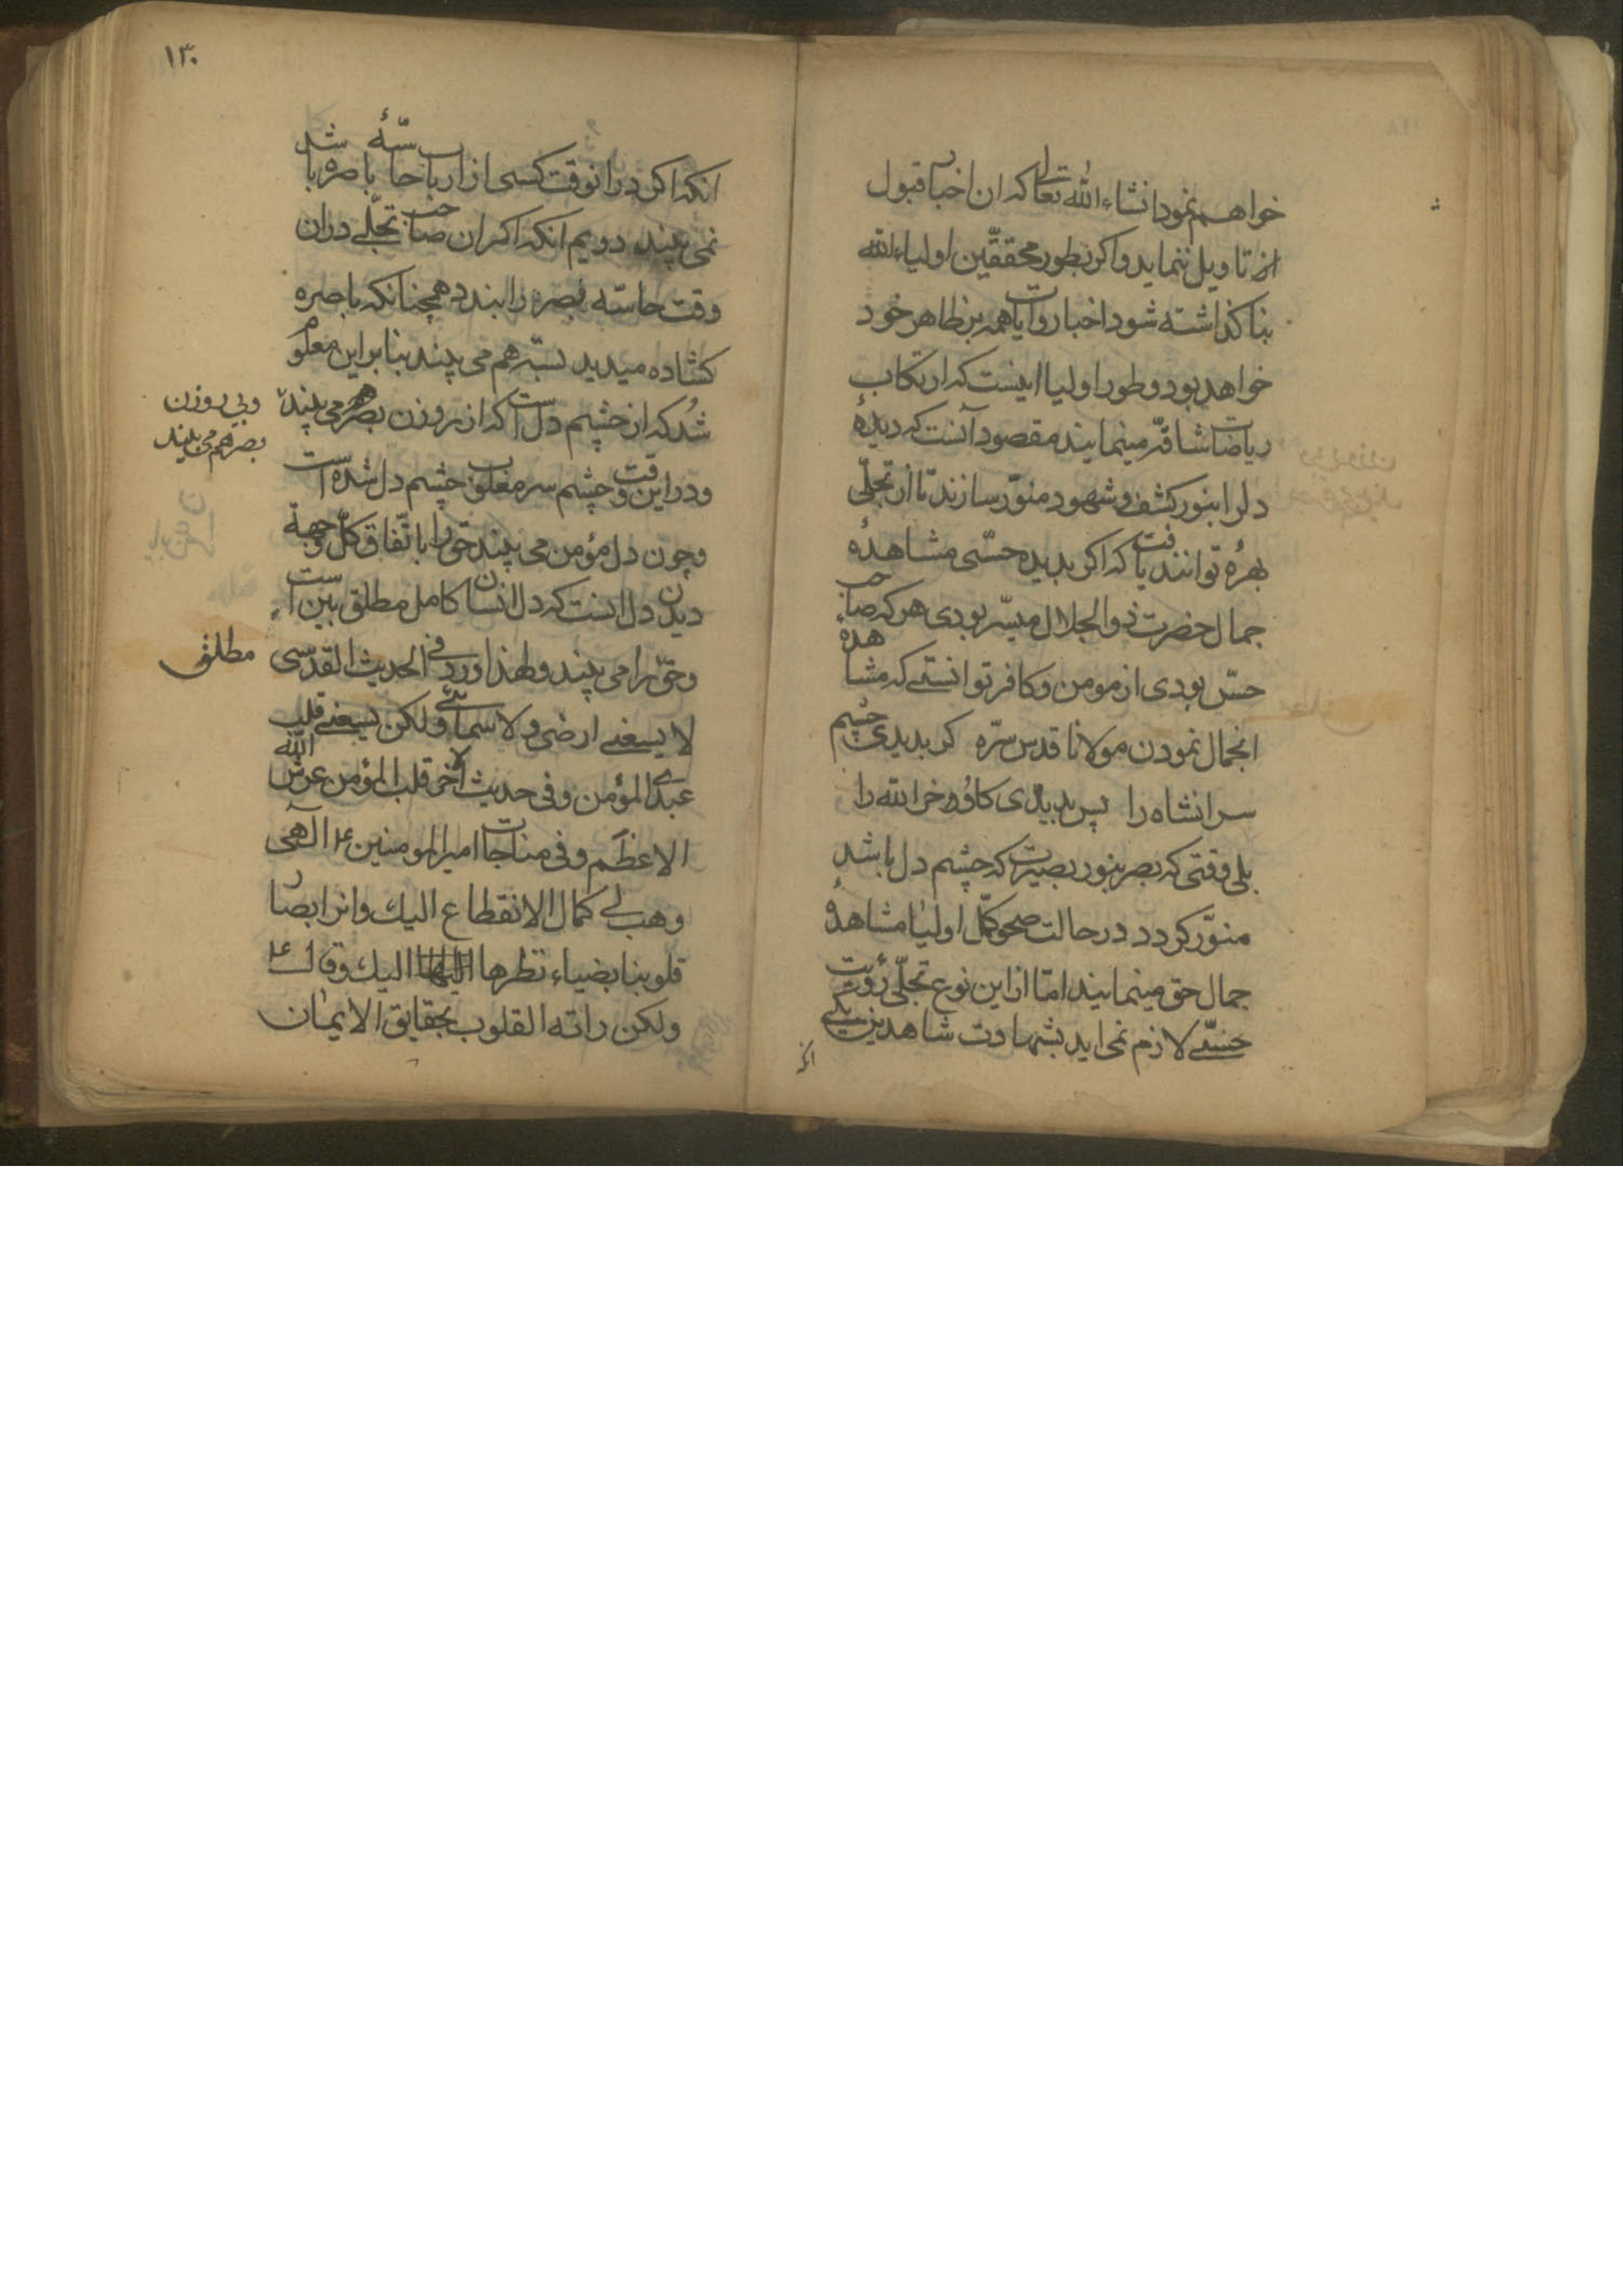 خواهم نمود انشاء الله تعالی که ان اخبار قبول
از تاویل ننماید و اکر بطور محققین اولیاء الله
بنا کذاشته شود اخبار و روایات همه بر ظاهر خود
خواهد بود و طور اولیا اینست که ارتکاب
ریاضات شاقه مینمایند مقصود آنست که دیدهٔ
دلرا بنور کشف و شهود منوّر سازند تا از تجلّی
بهرهٔ توانند یافت که اکر بدیده حسّی مشاهدهٔ
جمال حضرت ذو الجلال میسّر بودی هر که صاحب
حسّ بودی از مومن و کافر توانستے که مشاهدهٔ
انجمال نمودن مولانا قدس سرّه کر بدیدی چشم
سر انشاه را پس بدیدی کاو و خر الله را
بلی وقتی که بصر بنور بصیرت که چشم دل باشد
منوّر کردد در حالت صحو کمّل اولیا مشاهدهٔ
جمال حق مینمایند امّا از این نوع تجلّی رؤیت
حسّے لازم نمی اید بشهادت شاهدین یکے
انکه
۱۳۰
انکه اکر در انوقت کسی از ارباب حاسّهٔ باصره باشد
نمی بیند دویم انکه اکر ان صاحب تجلّے در ان
وقت حاسّه بصر را بندد همچنانکه باصره
کشاده میدید بسته هم می بیند بنا بر این معلوم
شد که از چشم دل است که از روزن بصر هم می بیند
وبی روزن
بصر هم می بیند
و در این وقت چشم سر مغلوب چشم دل شده است
و چون دل مؤمن می بیند حق را باتّفاق کلّ وجهة
دیدن دل انست که دل انسان کامل مطلق بین است
و حق را می بیند و لهذا ورد فی الحدیث القدسی
مطلق
لا یسعنے ارضی و لا سمائی و لکن یسعنے قلب
عبدی المؤمن و فی حدیث الآخر قلب المؤمن عرش الله
الاعظم و فی مناجات امیر المومنین ع الهی
وهب لے کمال الانقطاع الیك وانر ابصار
قلوبنا بضیاء نظرها الیك و قال ع
ولکن راته القلوب بحقایق الایمان